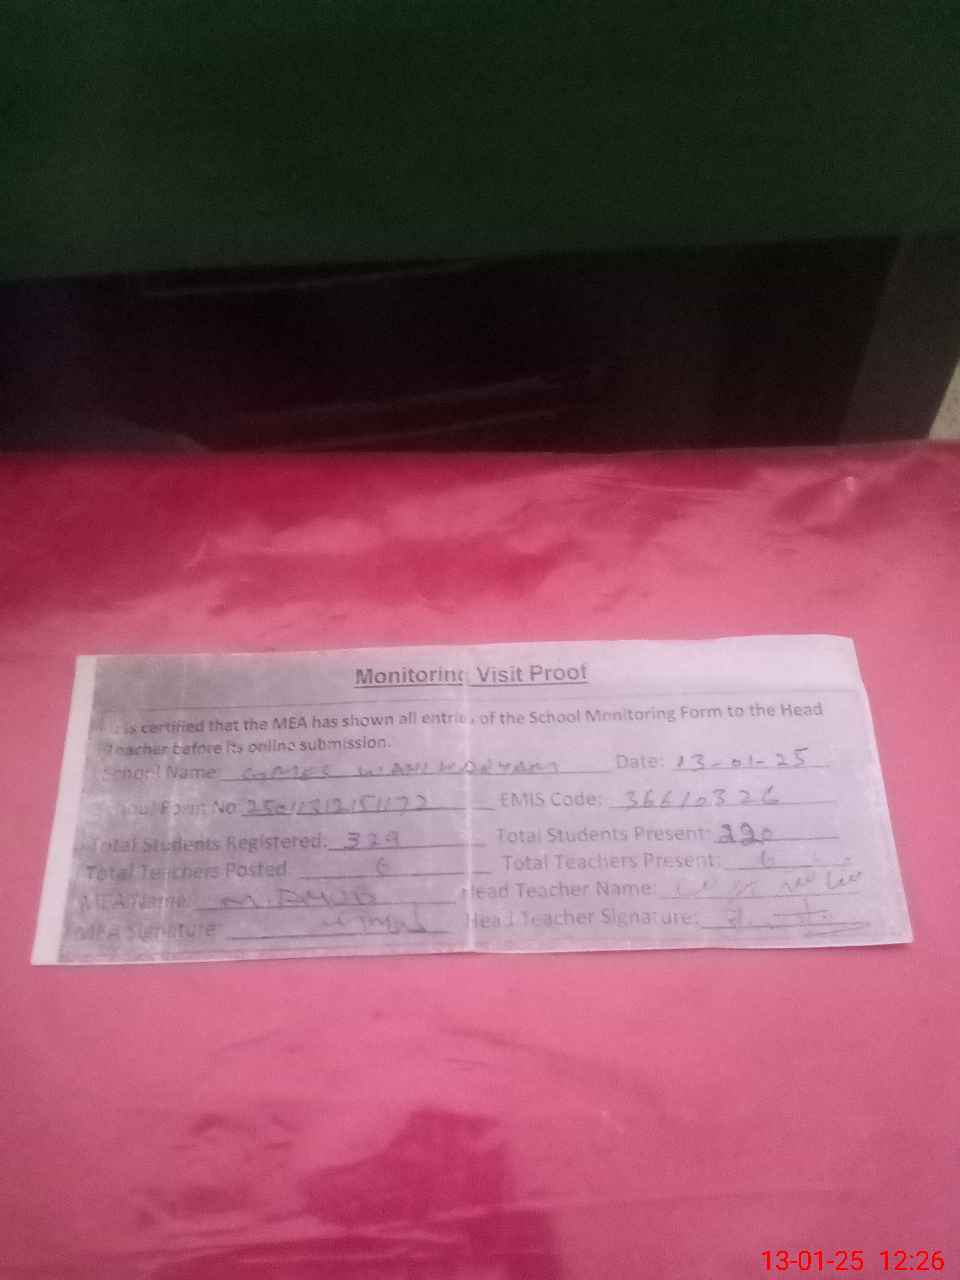 Monitoring Visit Proof
is certified that the MEA has shown all entries of the School Monitoring Form to the Head
Teacher before its online submission.
School Name: GMES WANIKARYAM Date: 13-01-25
School Form No: EMIS Code: 36610326
Total Students Registered: 329 Total Students Present: 220
Total Teachers Posted: 6 Total Teachers Present: 6
MEA Name: M. Head Teacher Name:
MEA Signature: Head Teacher Signature:
13-01-25 12:26